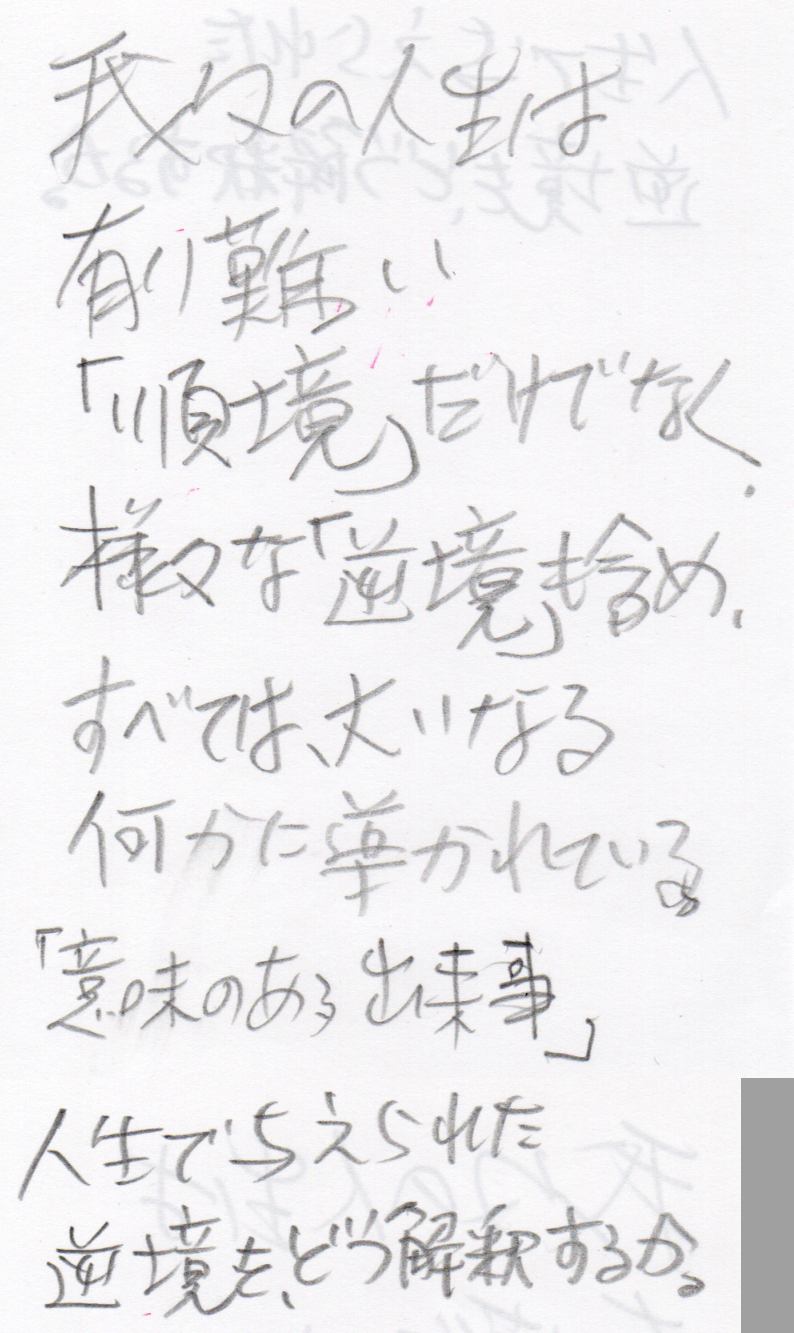 我々の人生は
有り難い
「順境」だけでなく、
様々な「逆境」も含め、
すべては、大いなる
何かに導かれている。
「意味のある出来事」
人生で与えられた
逆境を、どう解釈するか。